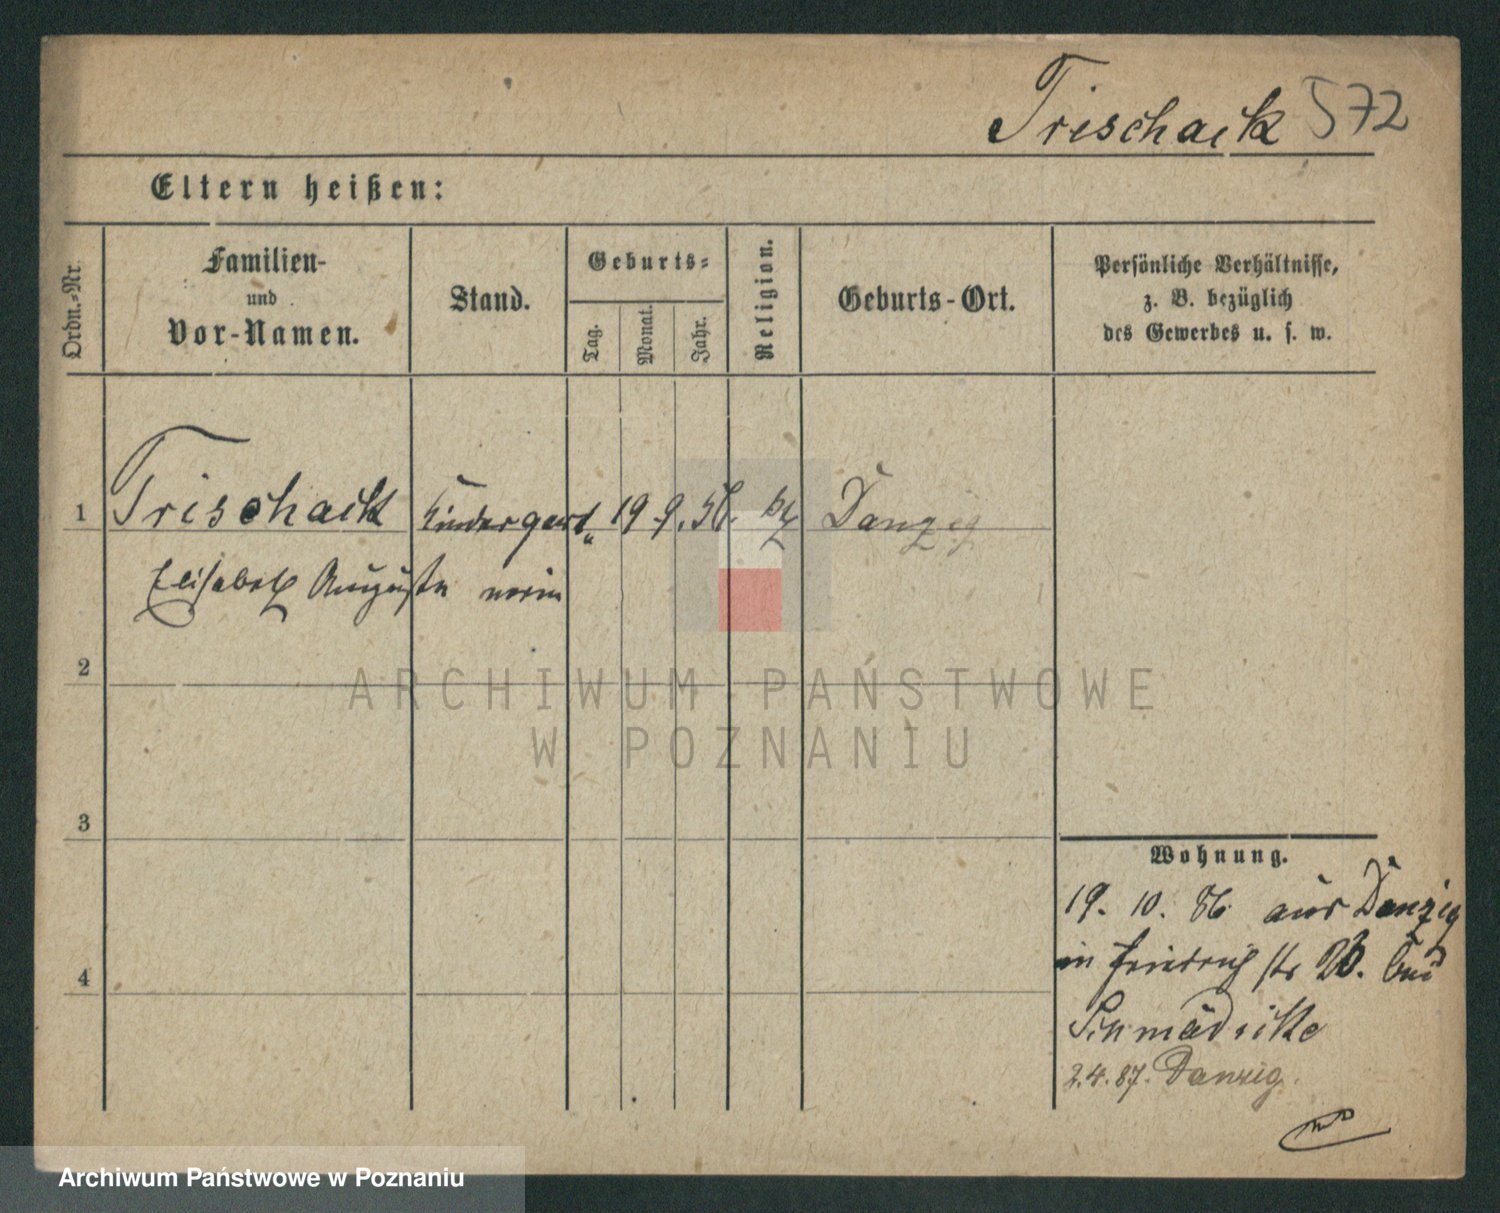 Trischack 572
Eltern heißen:
Ordn.-Nr.
Familien-
und
Vor-Namen.
Stand.
Geburts-
Tag.
Monat.
Jahr.
Religion.
Geburts-Ort.
Persönliche Verhältnisse,
z. B. bezüglich
des Gewerbes u. s. w.
1 Trischack Kindergärt 19 9. 56. Danzig
Elisabeth Auguste nerin
2
ARCHIWUM PAŃSTWOWE
W POZNANIU
3
Wohnung.
19. 10. 86 aus Danzig
in Friedrich str bei
4
Schmädicke
2.4.87. Danzig.
Archiwum Państwowe w Poznaniu